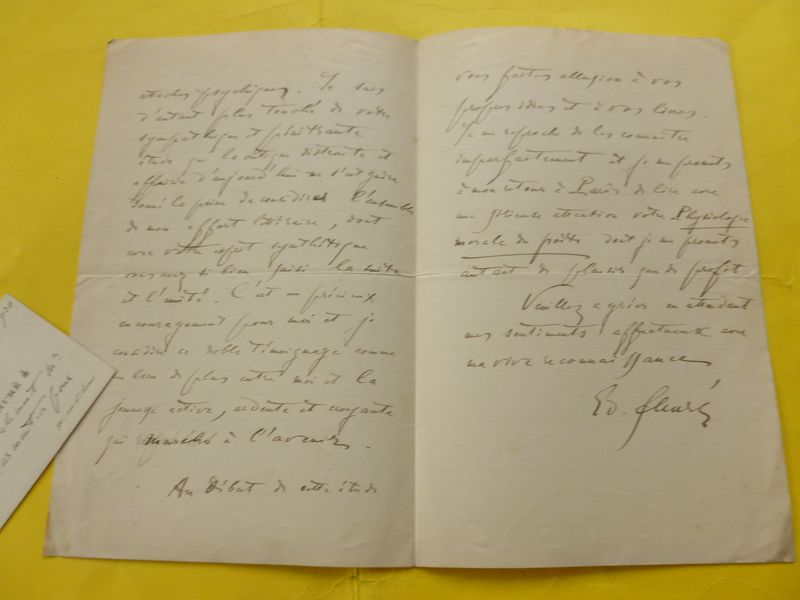 attaches psychiques. Je suis
d'autant plus touché de votre
sympathique et pénétrante
étude que la critique distraite et
affairée d'aujourd'hui ne s'est guère
donné la peine de considérer l'ensemble
de mon effort littéraire, dont
avec votre esprit synthétique
vous avez si bien saisi la suite
et l'unité. C'est un précieux
encouragement pour moi et je
considère ce noble témoignage comme
un lien de plus entre moi et la
jeunesse active, ardente et croyante
qui à l'avenir.
Au début de cette étude
vous faites allusion à vos
propres idées et à vos livres.
Je me reproche de les connaître
imparfaitement et je me promets
à mon retour à Paris de lire avec
une sérieuse attention votre Physiologie
morale du poète dont je me promets
autant de plaisir que de profit.
Veuillez agréer en attendant
mes sentiments affectueux avec
ma vive reconnaissance
Ed.